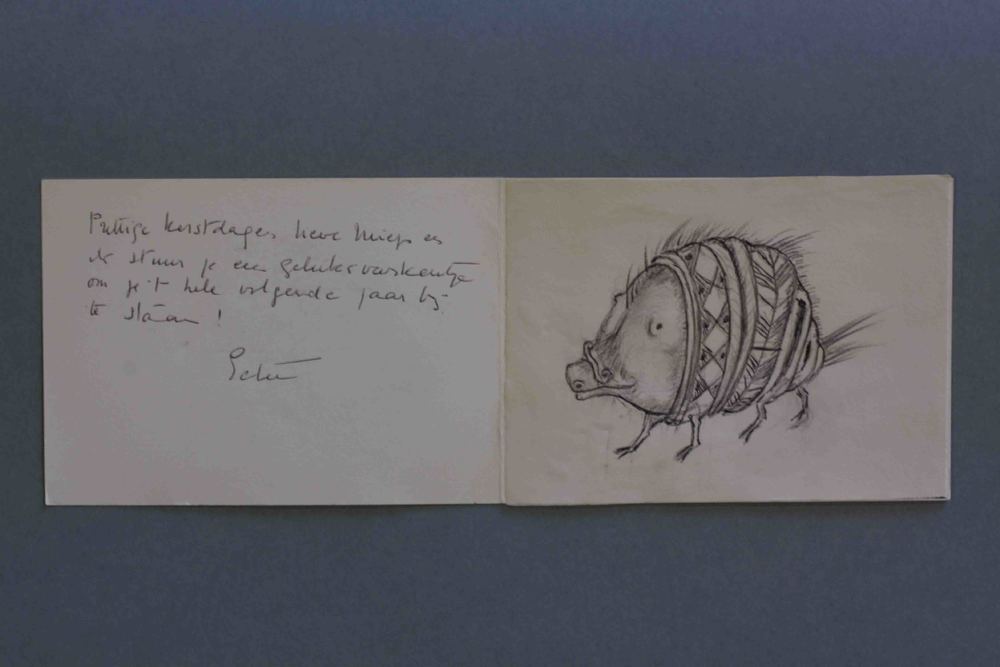 Prettige kerstdagen lieve Miep en
ik stuur je een gelukksvarkentje
om je 't hele volgende jaar bij
te staan !